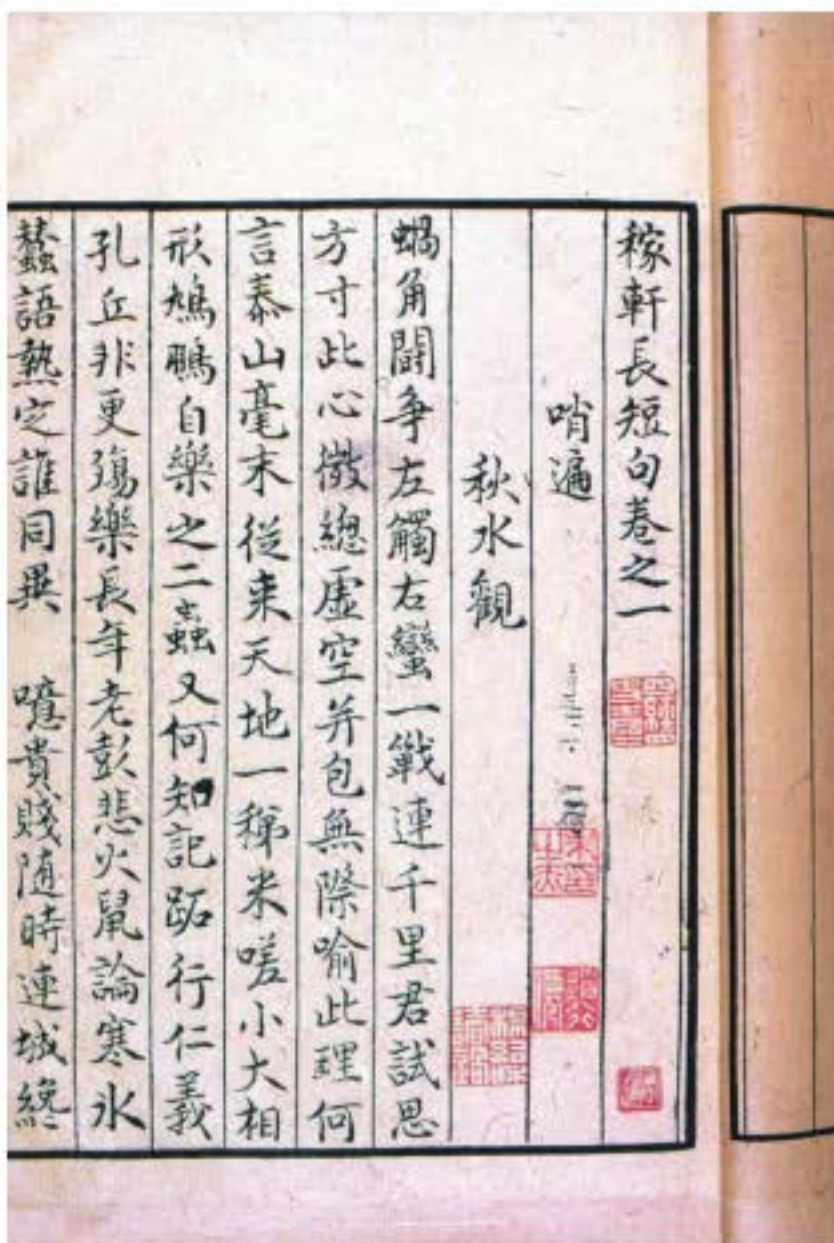 稼軒長短句卷之一
哨遍
秋水觀
蝸角鬭争左觸右蠻一戰連千里君試思
方寸此心微總虛空并包無際喻此理何
言泰山毫末從来天地一稊米嗟小大相
形鳩鵬自樂之二蟲又何知記跖行仁義
孔丘非更殤樂長年老彭悲火鼠論寒氷
蠶語熱定誰同異 噫貴賤随時連城纔